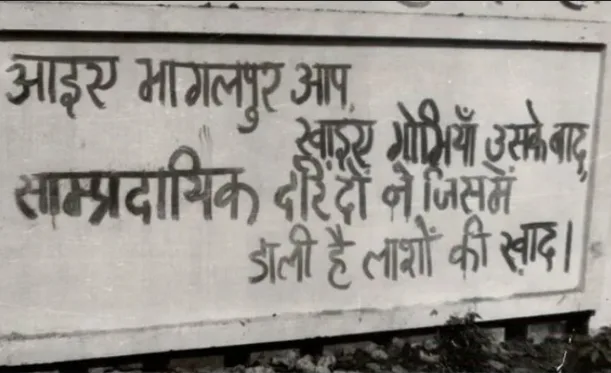 आइए भागलपुर आप,
खाइए गोभियाँ उसके बाद,
साम्प्रदायिक दरिंदों ने जिसमें
डाली है लाशों की खाद।